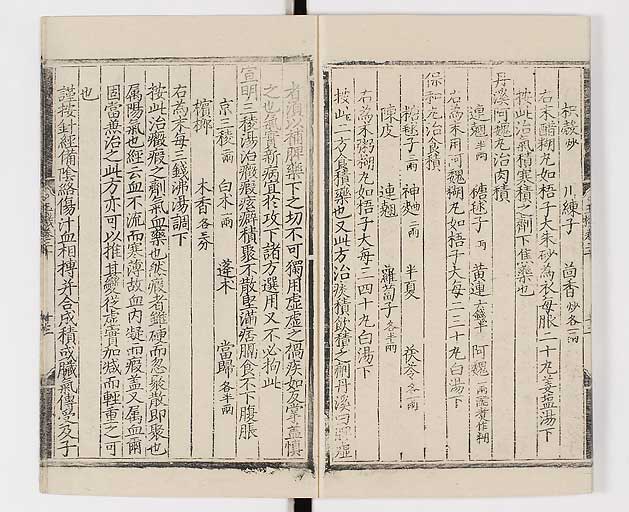 枳殼炒 川練子 茴香炒各一兩
右末醋糊丸如梧子大朱砂為衣每服二十丸姜盐湯下
按此治氣積寒積之劑下焦藥也
丹溪阿魏丸治肉積
連翹半兩 糖毬子一兩 黃連六錢半 阿魏一兩醋煮作糊
右為末用阿魏糊丸如梧子大每二三十丸白湯下
保和丸治食積
糖毬子二兩 神麯二兩 半夏 茯苓各一兩
陳皮 連翹 蘿蔔子各半兩
右為末粥糊丸如梧子大每三四十丸白湯下
按此二方食積藥也又此方治痰積飲積之劑丹溪曰脾虛
者須以補脾藥下之切不可獨用虛虛之禍疾如反掌盍慎
之也氣實新病宜於攻下諸方選用又不必拘此
宣明三稜湯治癥瘕痃癖積聚不散堅滿痞膈食不下腹脹
京三稜二兩 白朮一兩 蓬朮 當歸各半兩
檳榔 木香各三分
右為末每三錢沸湯調下
按此治癥瘕之劑氣血藥也然瘕者雖硬而忽聚散即聚也
屬陽氣也經云血不流而寒薄故血內凝而瘕盖又屬血爾
固當兼治之此方亦可以推其
從虛實加減而輕重之可
也
謹按針經脩陰絡傷汁血相搏并合成積或臟氣傳
及子